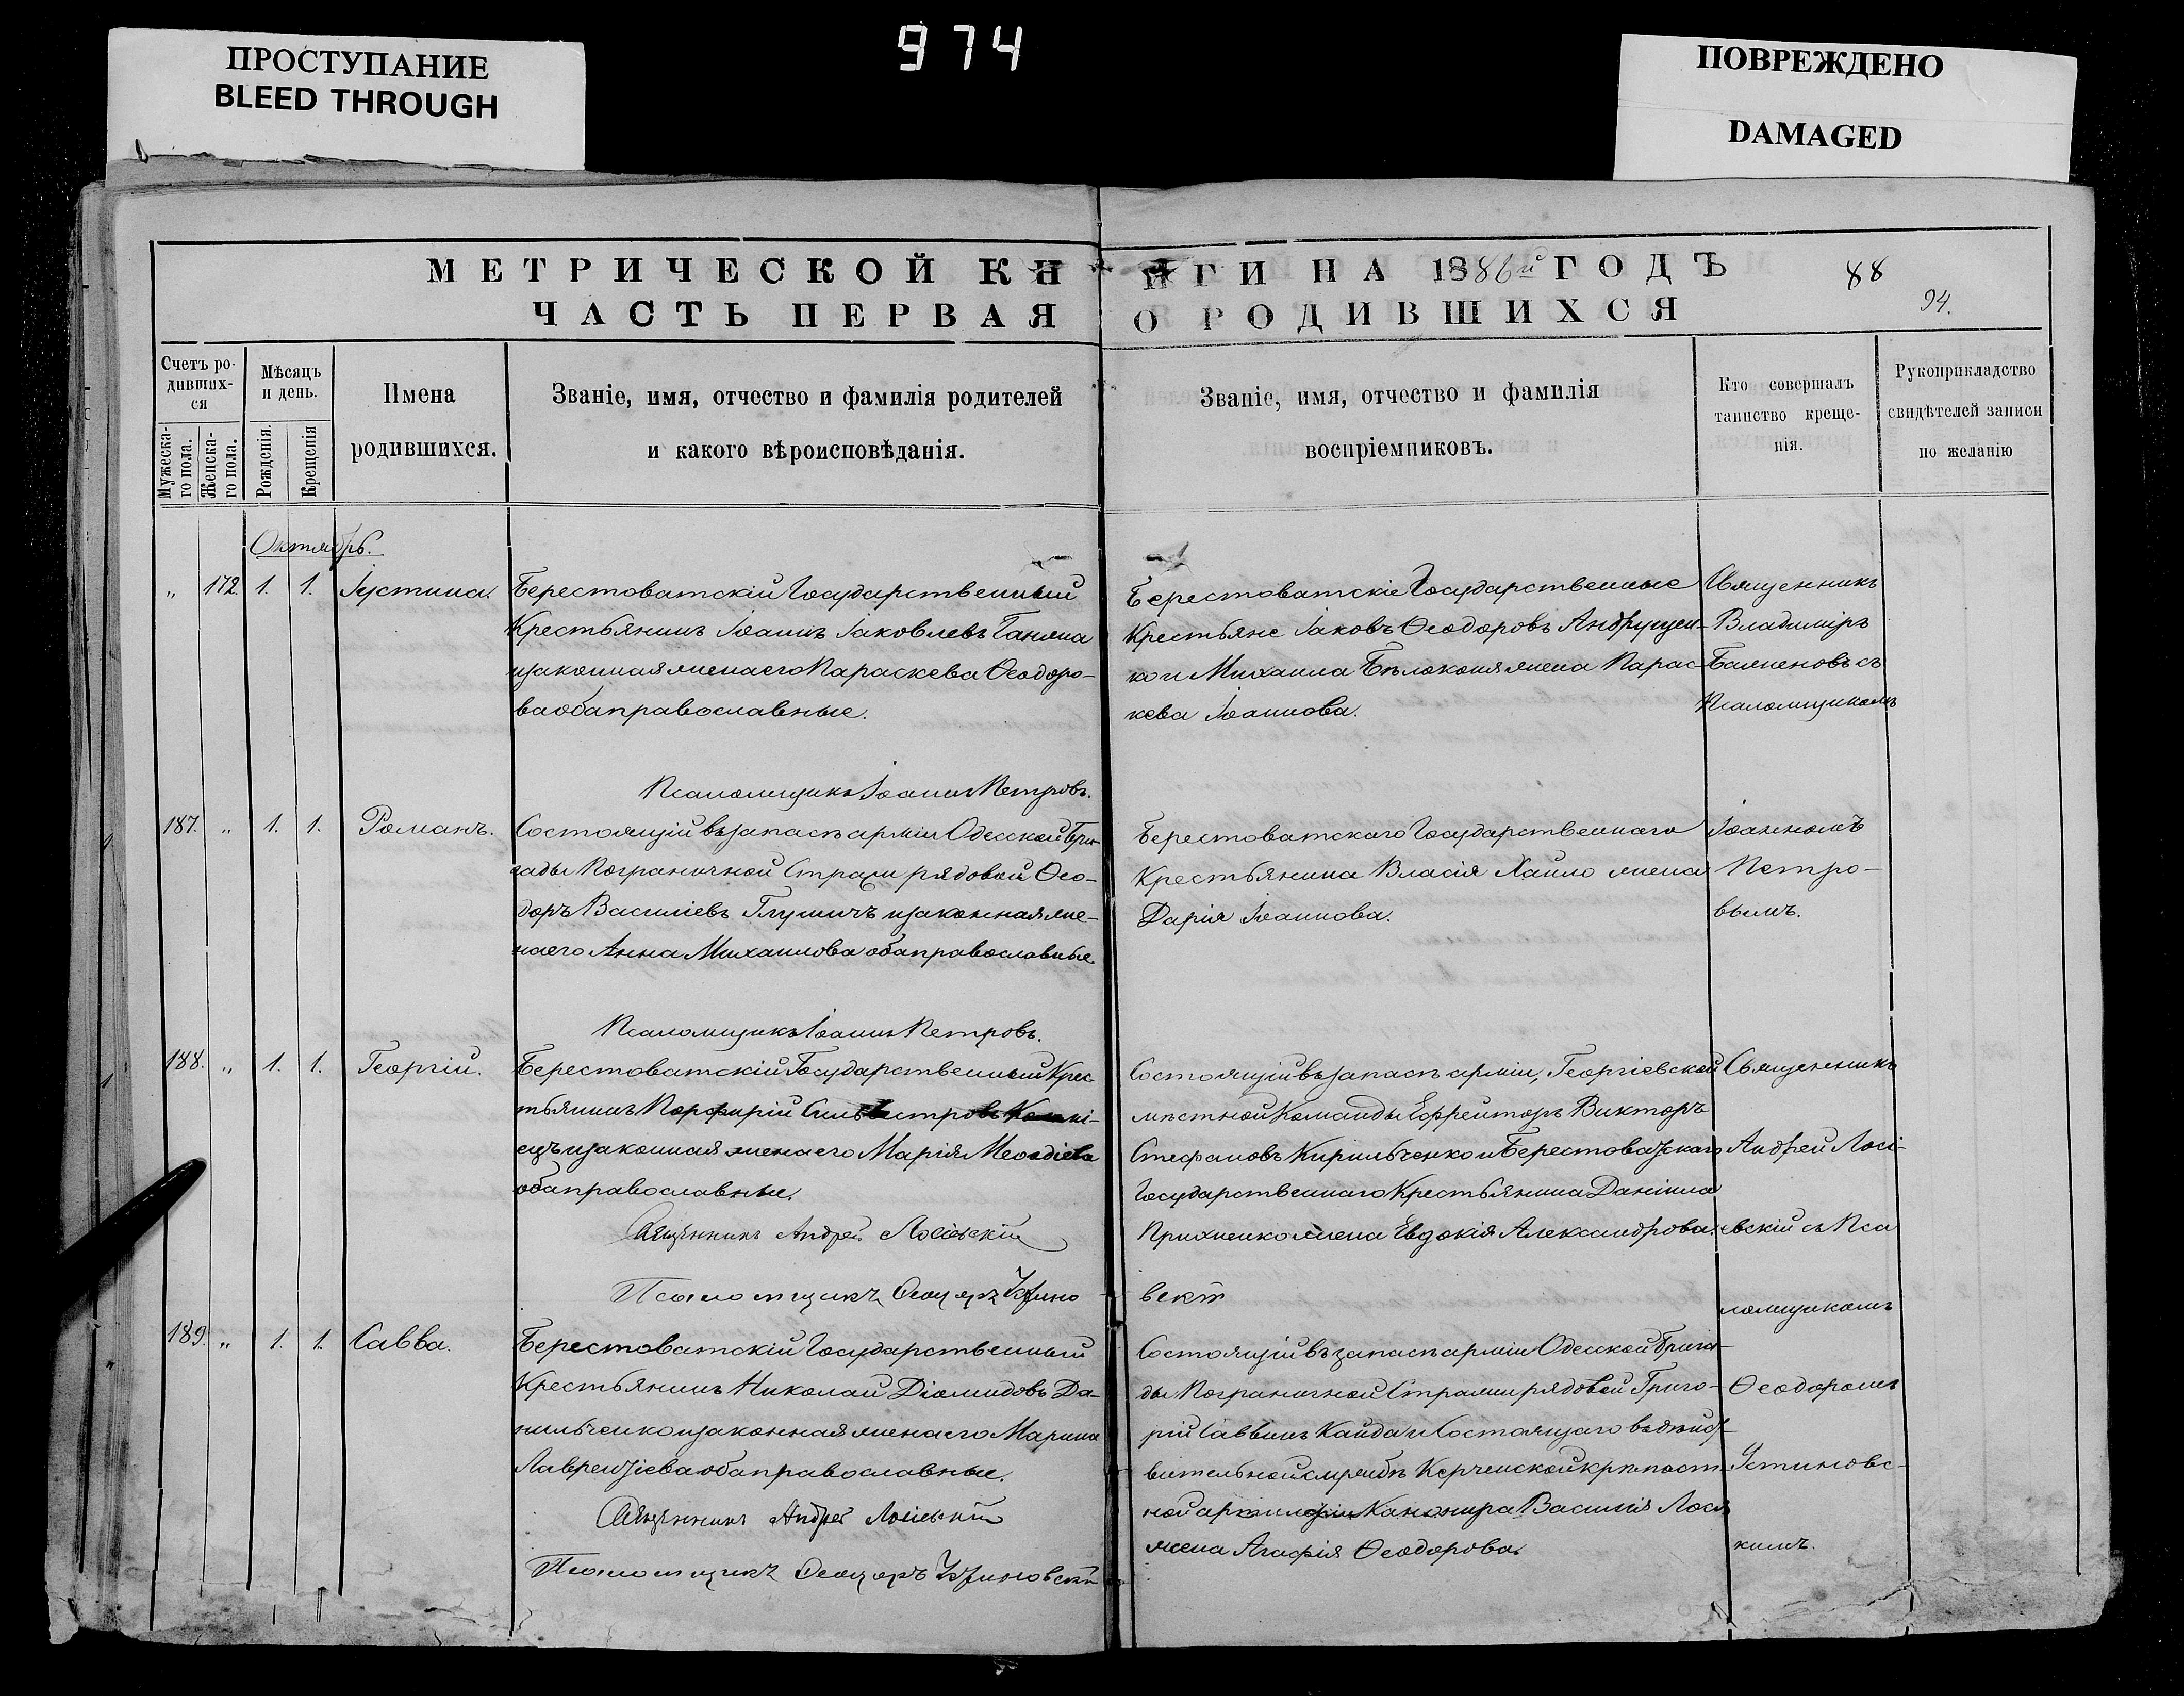 ПРОСТУПАНИЕ
BLEED THROUGH
974
ПОВРЕЖДЕНО
DAMAGED
МЕТРИЧЕСКОЙ КНИГИ НА 1886й ГОДЪ
88
94.
ЧАСТЬ ПЕРВАЯ О РОДИВШИХСЯ
Счетъ ро-
дивших-
ся
Мужеска-
го пола.
Женска-
го пола.
Мѣсяцъ
и день.
Рожденія.
Крещенія
Имена
родившихся.
Званіе, имя, отчество и фамилія родителей
и какого вѣроисповѣданія.
Званіе, имя, отчество и фамилія
воспріемниковъ.
Кто совершалъ
таинство креще-
нія.
Рукоприкладство
свидѣтелей записи
по желанію
Октябрь.
„ 172. 1. 1. Іустина.
Берестоватскій Государственный
Крестьянинъ Іоаннъ Іаковлевъ Ганжа
и законная жена его Параскева Ѳеодоро-
ва оба православные.
Псаломщикъ Іоаннъ Петровъ.
Берестоватскіе Государственные
Крестьяне Іаковъ Ѳеодоровъ Андрущен-
ко и Михаила Бѣлоконя жена Парас-
кева Іоаннова.
Священникъ
Владиміръ
Баженовъ съ
Псаломщикомъ
187. „ 1. 1. Романъ.
Состоящій въ запасѣ арміи Одесской Бри-
гады Пограничной Стражи рядовой Ѳео-
доръ Василіевъ Глушичъ и законная же-
на его Анна Михаилова оба православные
Псаломщикъ Іоаннъ Петровъ.
Берестоватскаго Государственнаго
Крестьянина Власія Хайло жена
Дарія Іоаннова.
Іоанномъ
Петро-
вымъ.
188. „ 1. 1. Георгій.
Берестоватскій Государственный Крес-
тьянинъ Порфирій Сильвестровъ
и законная жена его Марія Меѳодіева
оба православные.
Священникъ Андрей Лосіевскій
Псаломщикъ Ѳеодоръ Устиновскій
Состоящій въ запасѣ арміи, Георгіевской
мѣстной Команды Ефрейторъ Викторъ
Стефановъ Кирильченко и Берестоватскаго
Государственнаго Крестьянина Даніила
Прихненко жена Евдокія Александрова.
Священникъ
Андрей Лосі-
евскій съ Пса
ломщикомъ
189. „ 1. 1. Савва.
Берестоватскій Государственный
Крестьянинъ Николай Діомидовъ Да-
нильченко и законная жена его Марина
Лаврентіева оба православные.
Священникъ Андрей Лосіевскій
Псаломщикъ Ѳеодоръ Устиновскій
Состоящій въ запасѣ арміи Одесской Брига-
ды Пограничной Стражи рядовой Григо-
рій Саввинъ Кайда и Состоящаго въ дѣйст-
вительной службѣ Керченской крѣпост-
ной артиллеріи Канонира Василія Лося
жена Агафія Ѳеодорова.
Ѳеодоромъ
Устиновс-
кимъ.